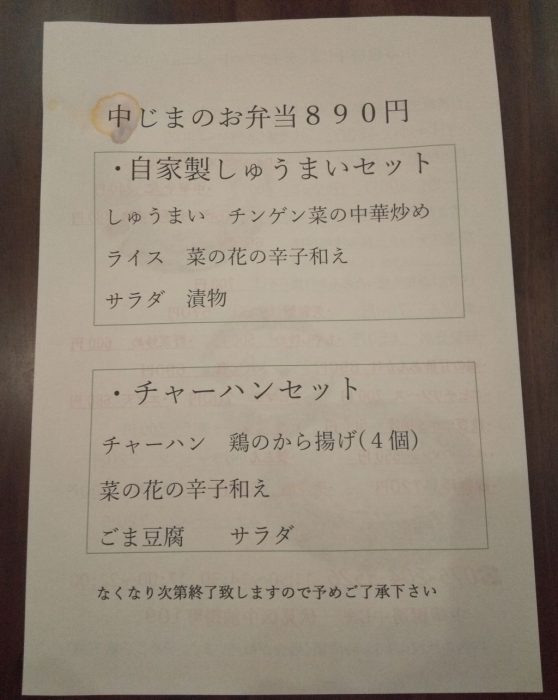 中じまのお弁当８９０円
・自家製しゅうまいセット
しゅうまい　チンゲン菜の中華炒め
ライス　菜の花の辛子和え
サラダ　漬物
・チャーハンセット
チャーハン　鶏のから揚げ(４個)
菜の花の辛子和え
ごま豆腐　　サラダ
なくなり次第終了致しますので予めご了承下さい